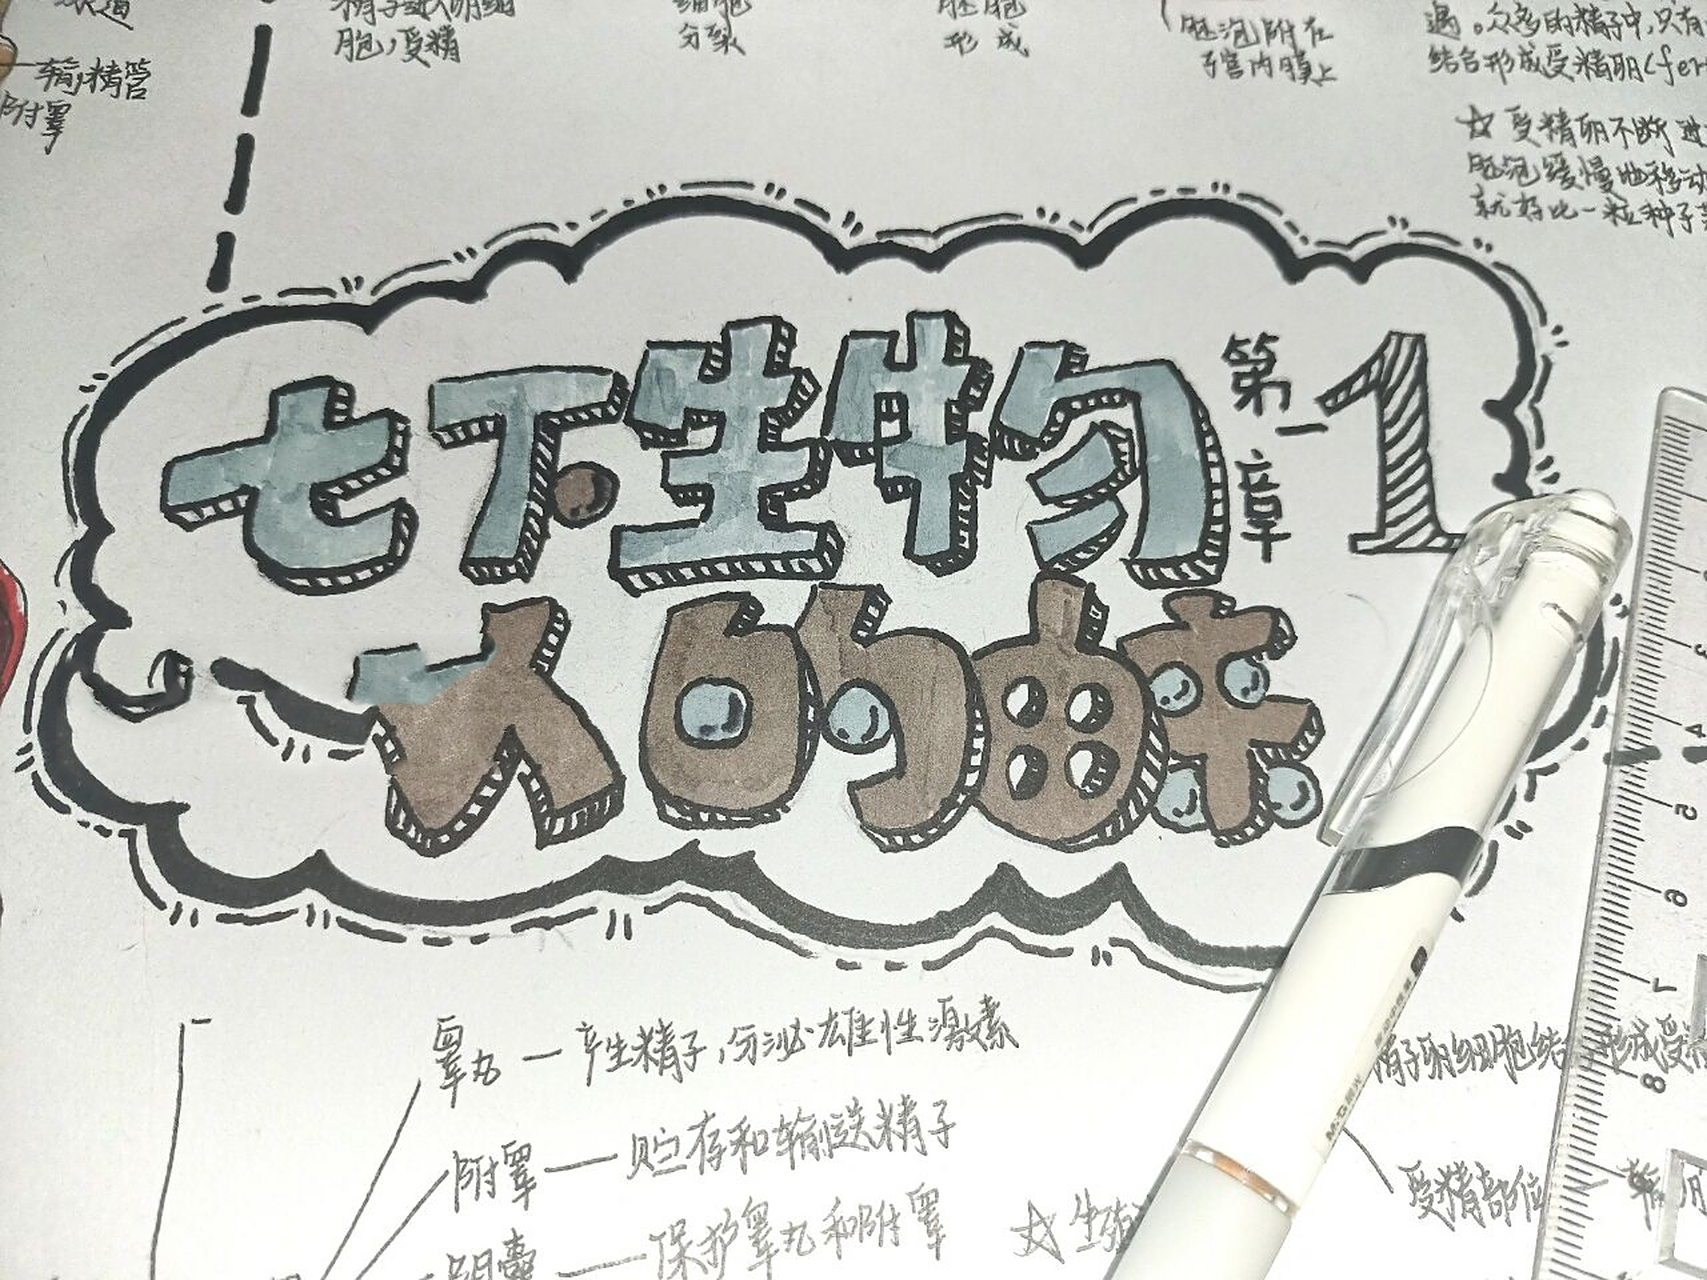 输精管
附睾
胞,受精
细胞
分裂
胚胞
形成
胚泡附在
子宫内膜上
遇。众多的精子中,只有
结合形成受精卵(fer
☆ 受精卵不断进
胚泡缓慢地移动
就好比一粒种子
七下·生物
第一章 1
人的由来
睾丸 — 产生精子,分泌雄性激素
附睾 — 贮存和输送精子
阴囊 — 保护睾丸和附睾
☆ 生殖
精子卵细胞结 形成受精
受精部位 — 输
M&G
3
4
5
6
7
8